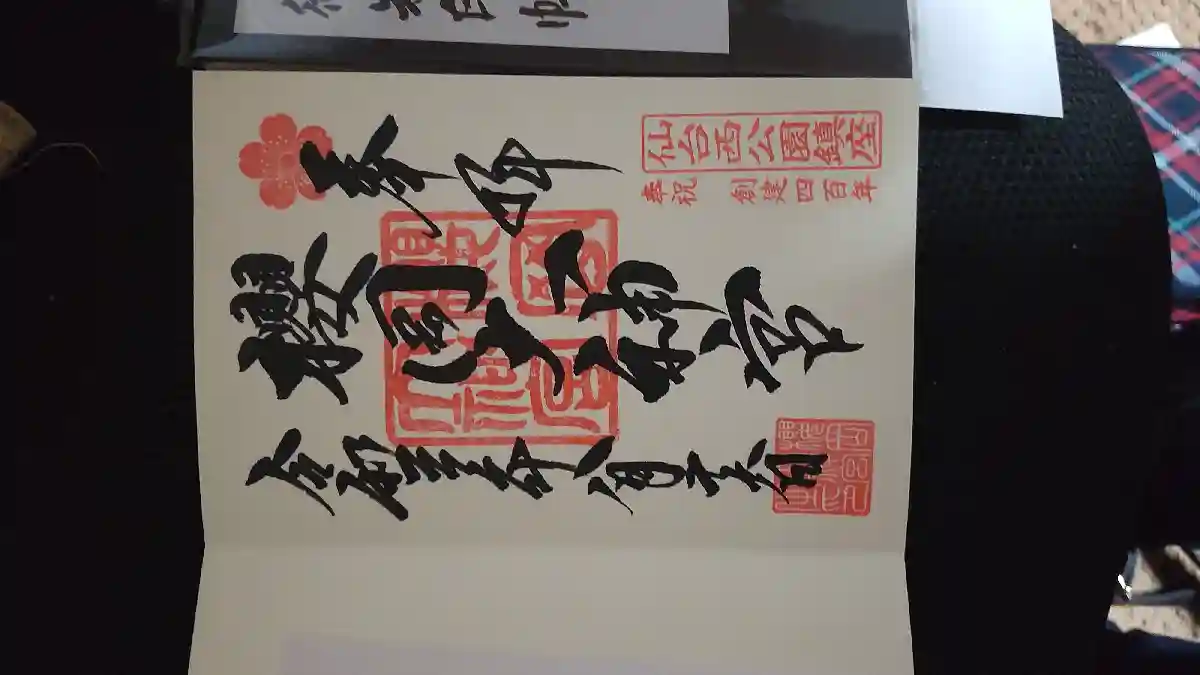 仙台西公園鎮座
奉祝 創建四百年
奉拝
櫻岡大神宮
令和三年八月二十六日